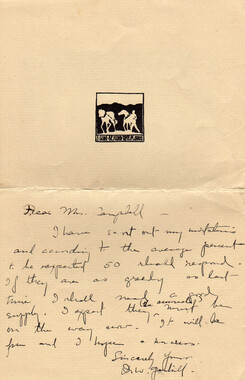 Dear Mrs. Campbell —
I have sent out my invitations
and according to the average percent
to be expected 50 should respond.
If they are as greedy as last
time, I shall need a good
supply. I expect they must be
on the way now. It will be
fun and I hope a success.
Sincerely yours